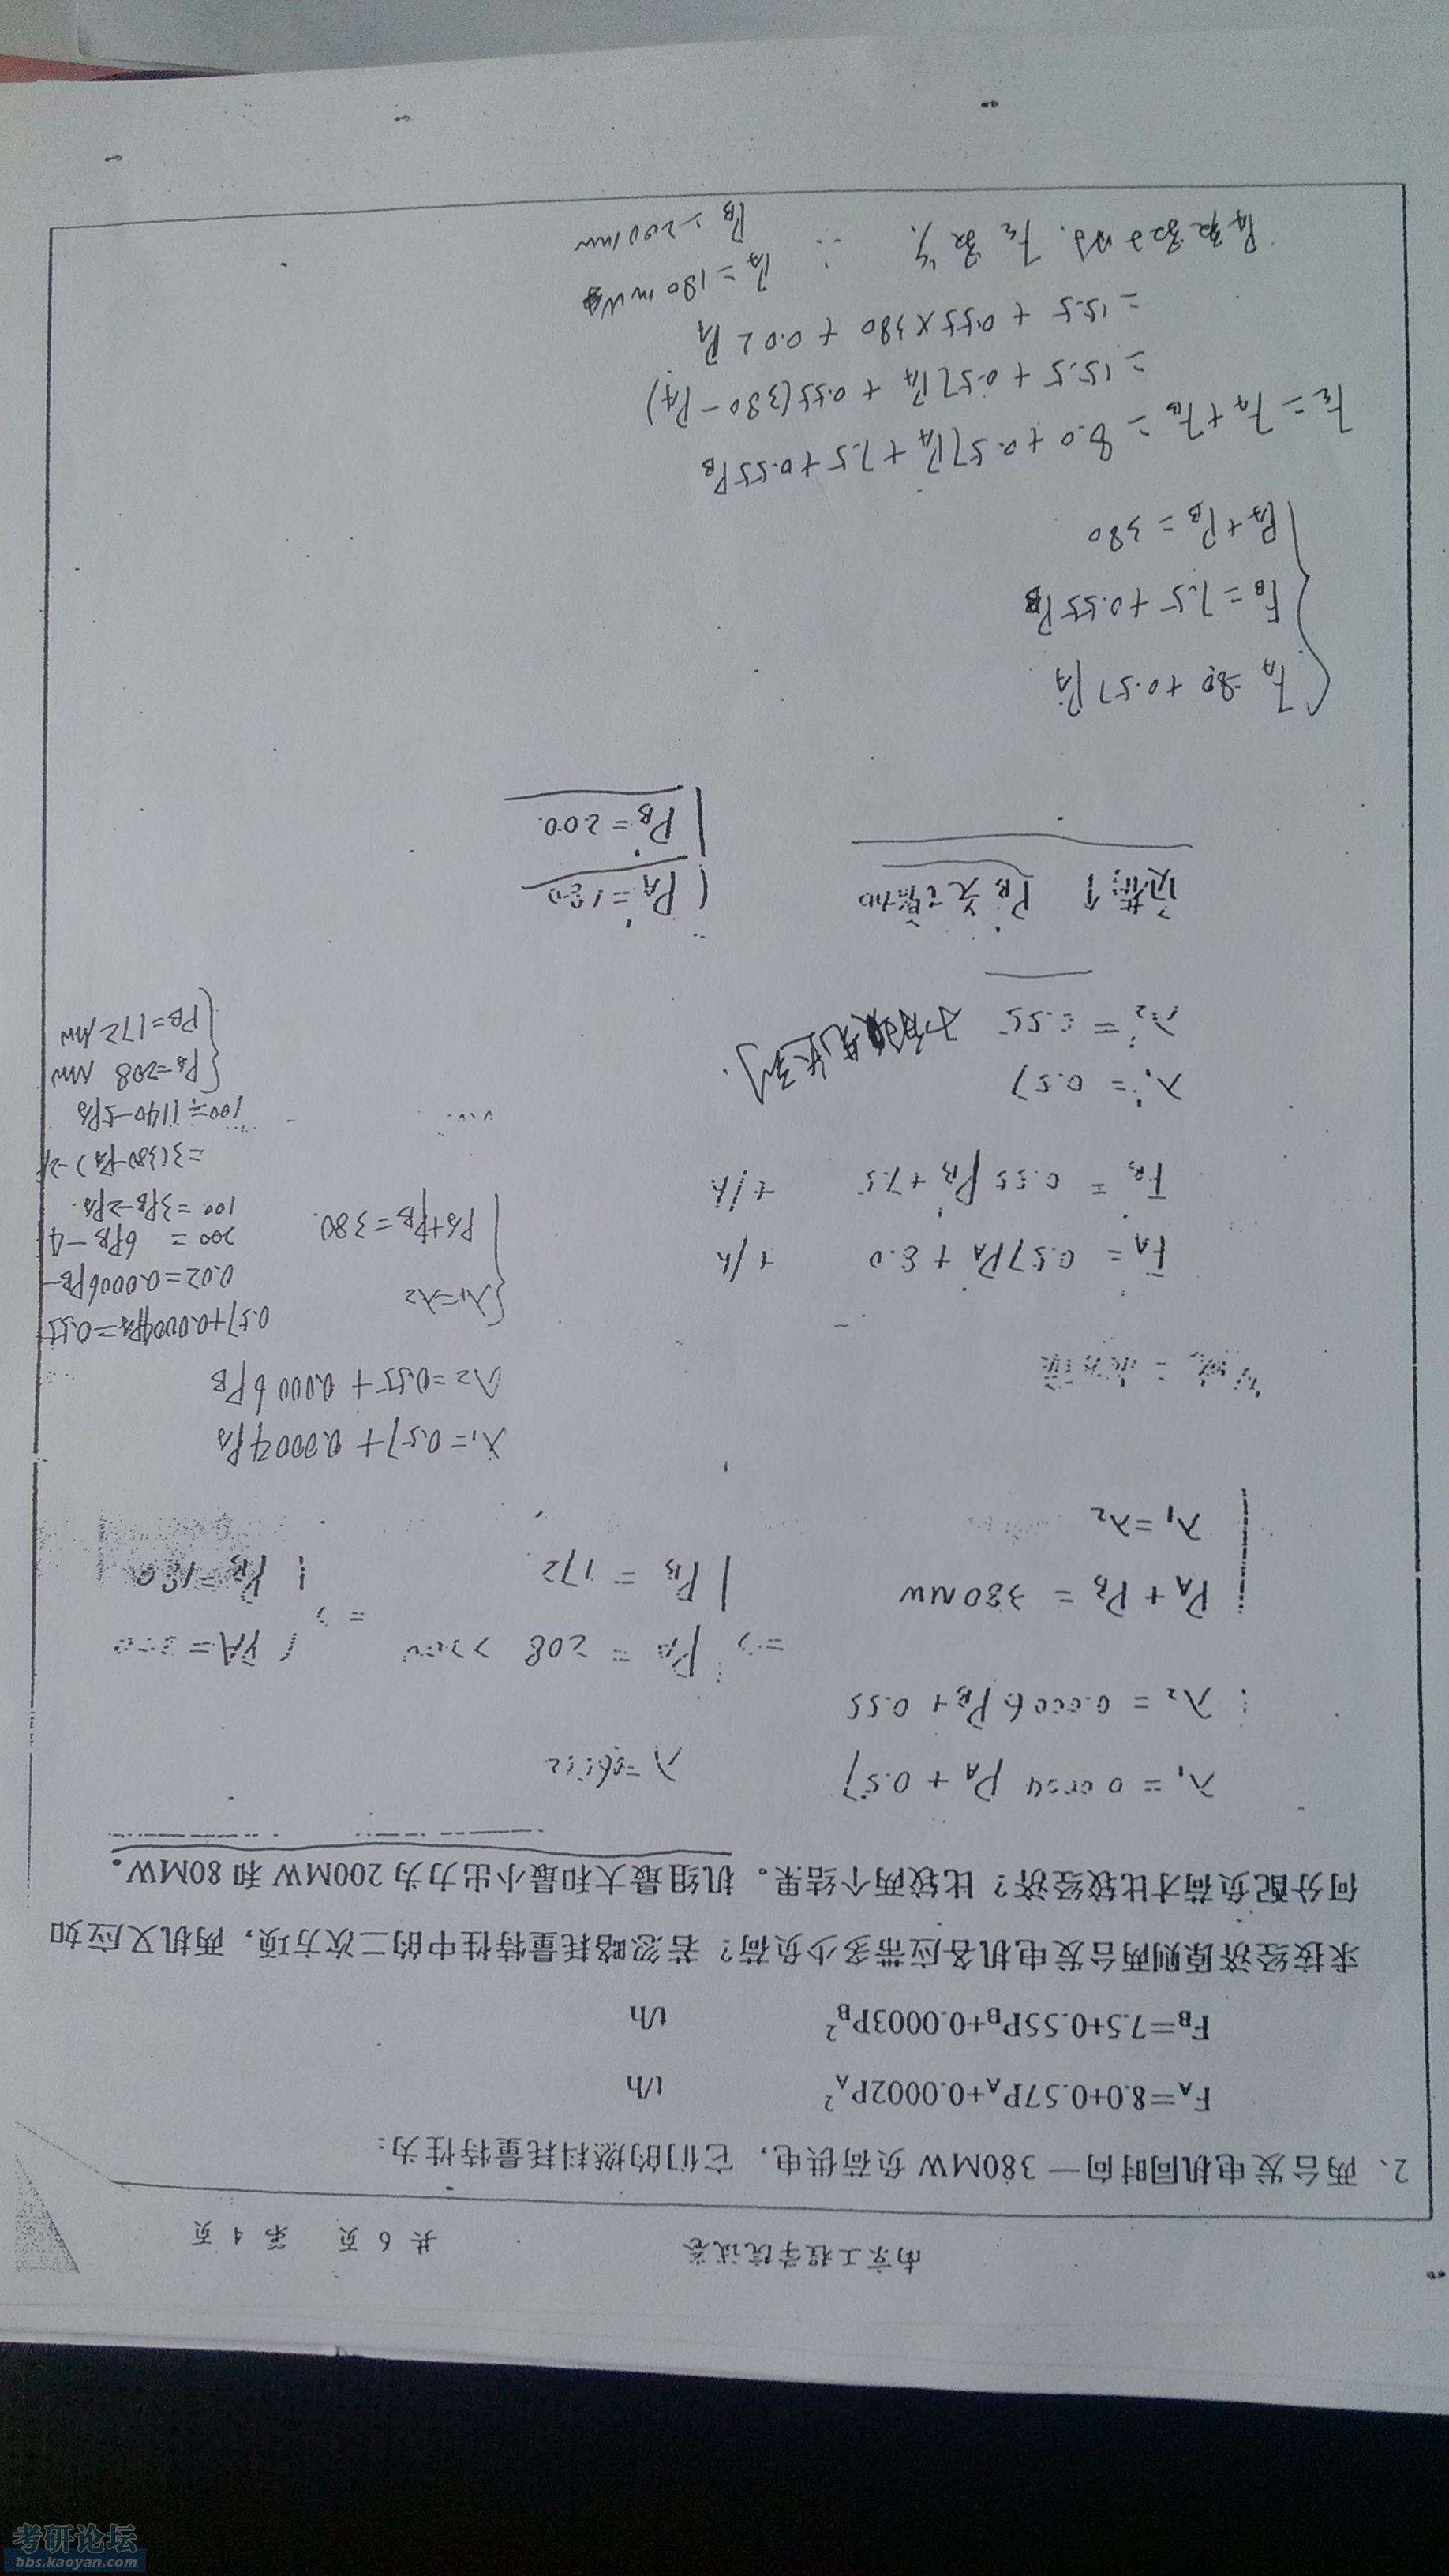 南京工程学院试卷 共 6 页 第 4 页
2、两台发电机同时向一 380MW 负荷供电，它们的燃料耗量特性为：
F_A=8.0+0.57P_A+0.0002P_A² t/h
F_B=7.5+0.55P_B+0.0003P_B² t/h
求按经济原则两台发电机各应带多少负荷？若忽略耗量特性中的二次方项，两机又应如
何分配负荷才比较经济？比较两个结果。机组最大和最小出力为 200MW 和 80MW。
λ₁ = 0.0004 P_A + 0.57
λ₂ = 0.0006 P_B + 0.55
P_A + P_B = 380MW
λ₁=λ₂
=> P_A = 208 >200
P_B = 172
=> P_A=200
P_B=180
λ₁=0.57+0.0004P_A
λ₂=0.55+0.0006P_B
λ₁=λ₂
P_A+P_B=380.
0.57+0.0004P_A=0.55+
0.02=0.0006P_B-
200= 6P_B-4
100=3P_B-2P_A.
=3(380-P_A)-2P
100=1140-5P_A
P_A=208 MW
P_B=172MW
F_A = 0.57P_A + 8.0 t/h
F_B = 0.55P_B + 7.5 t/h
λ₁ = 0.57
λ₂ = 0.55
负荷↑ P_B先增加
P_A=180
P_B=200.
F_A=8.0+0.57P_A
F_B=7.5+0.55P_B
P_A+P_B=380
F_Σ=F_A+F_B=8.0+0.57P_A+7.5+0.55P_B
=15.5+0.57P_A+0.55(380-P_A)
=15.5+0.55×380+0.02P_A
P_A 最小时. F_Σ最小. ∴ P_A=180mW
P_B=200mw
考研论坛
bbs.kaoyan.com